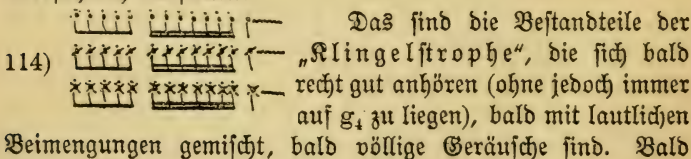 Das sind die Bestandteile der
114) „Klingelstrophe“, die sich bald
recht gut anhören (ohne jedoch immer
auf g₄ zu liegen), bald mit lautlichen
Beimengungen gemischt, bald völlige Geräusche sind. Bald